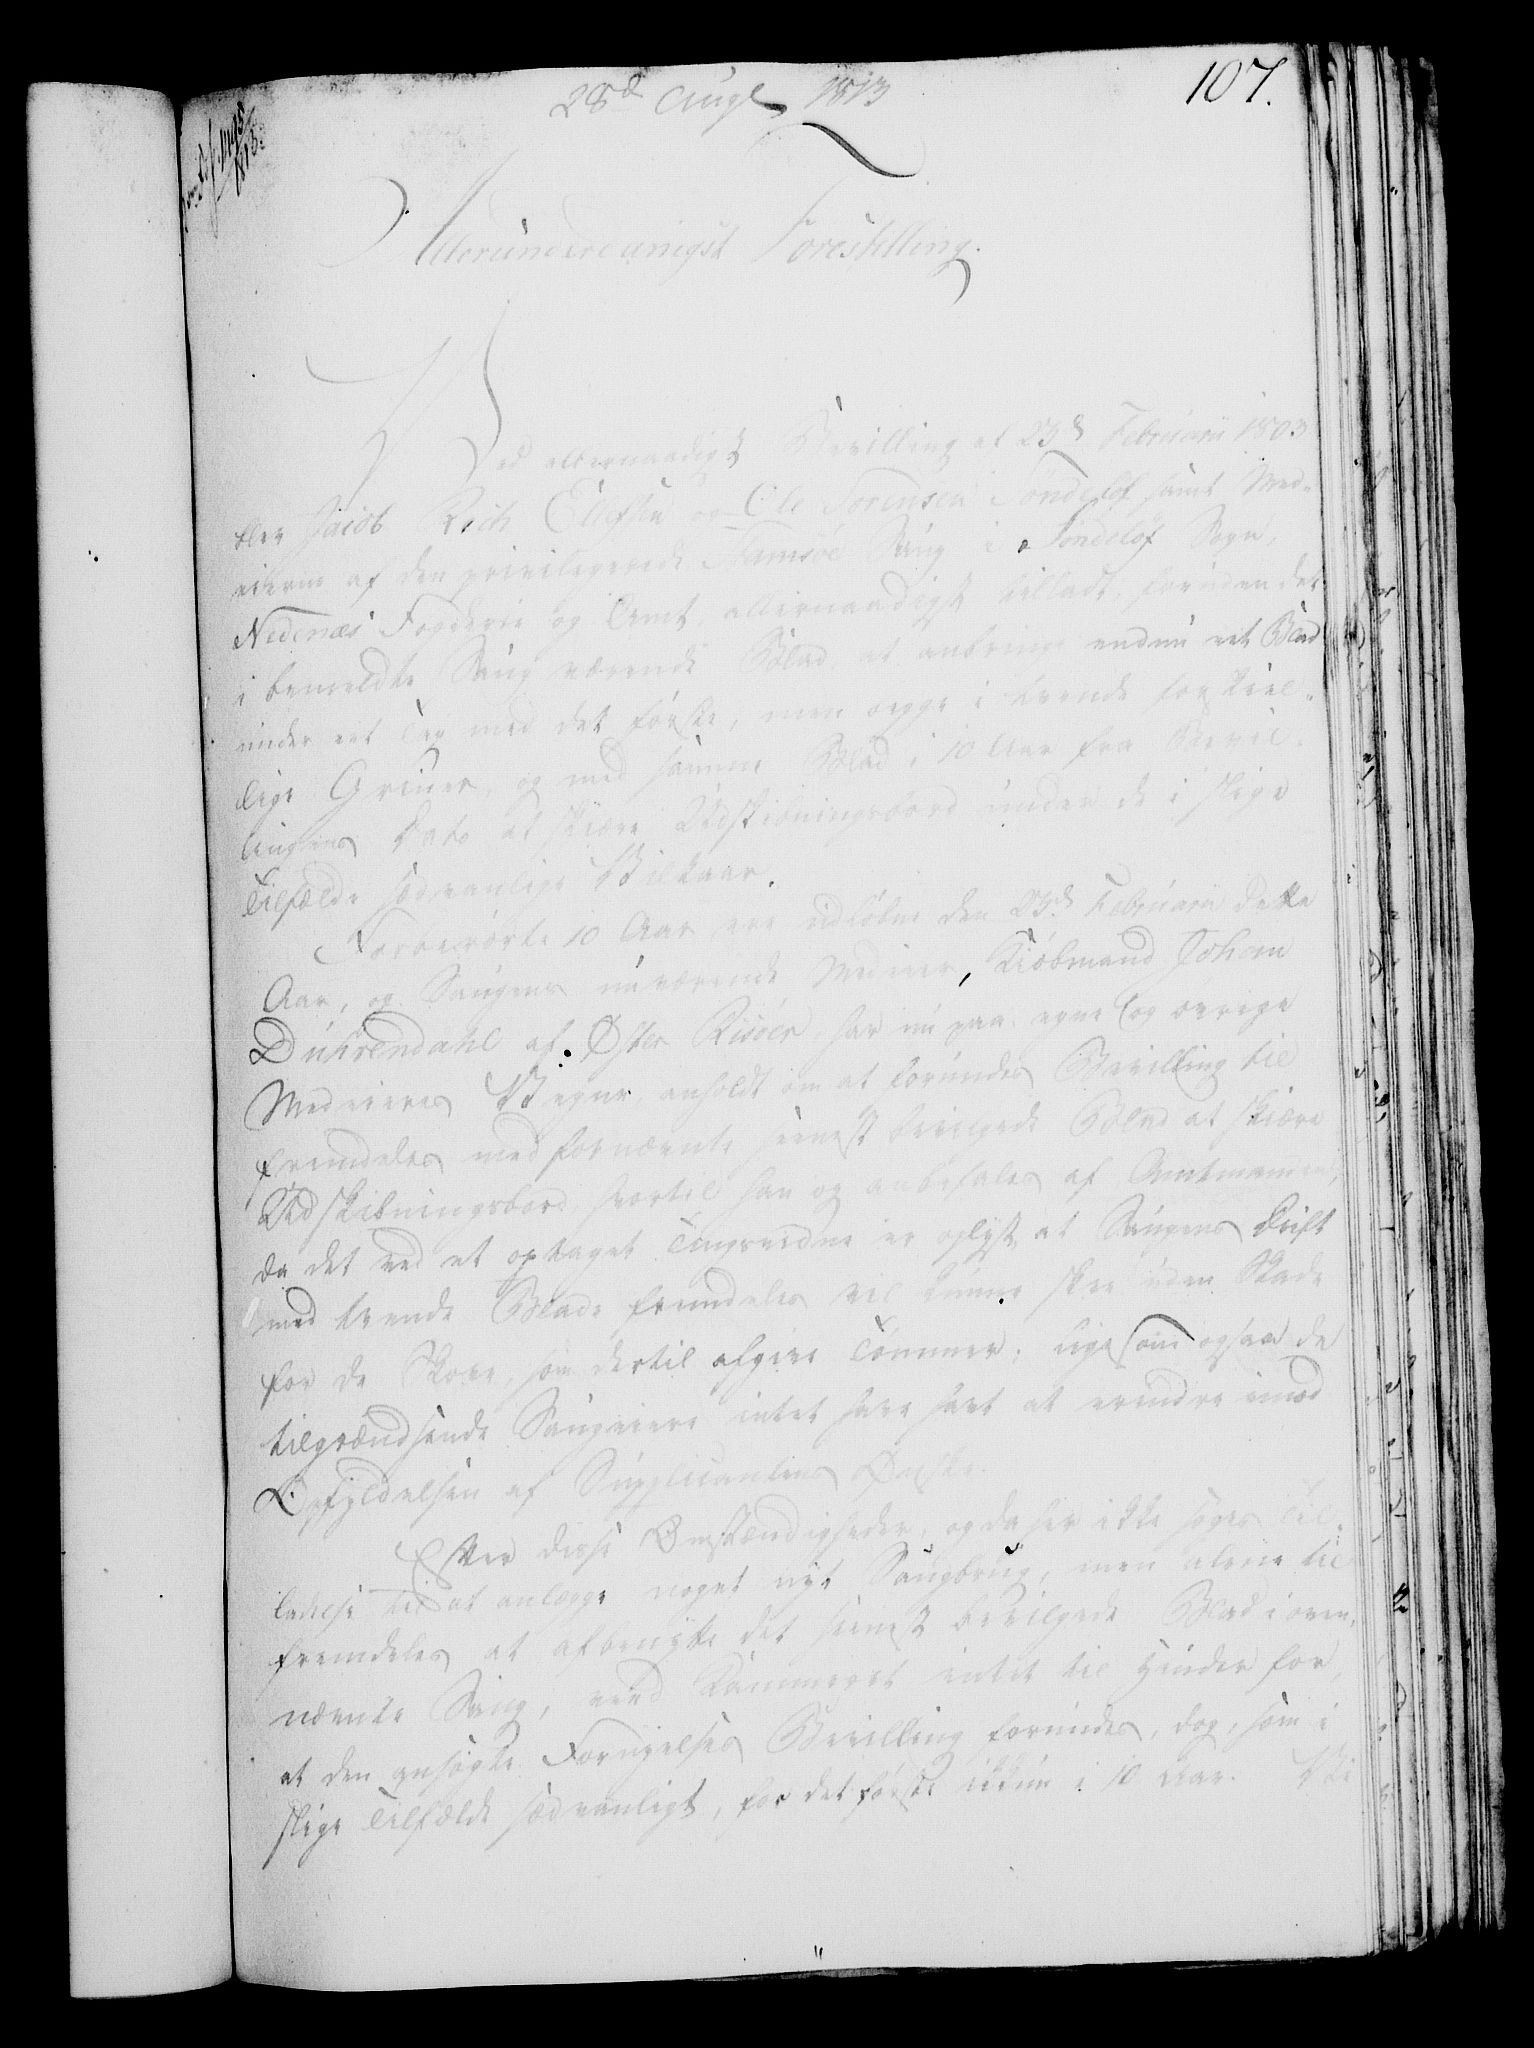 28d Augt 1813
107.
Allerunderdanigst Forestilling.
Ved allernaadigst Bevilling af 23d Februarii 1803
blev Jacob Rich Ellefsen og Ole Sørensen Søndeløf samt Med-
eierne af den privilegerede Ramsøe Saug i Søndeløf Sogn,
Nedenæs Fogderie og Amt, allernaadigst tilladt, foruden det
i bemeldte Saug værende Blad, at anbringe endnu eet Blad
under eet Tag med det første, men begge i tvende forskiel-
lige Grinder, og med samme Blad i 10 Aar fra Bevil-
lingens Dato at skiære Udskibningsbord under de i slige
Tilfælde sædvanlige Vilkaar.
Forberørte 10 Aar ere udløbne den 23d Februarii dette
Aar, og Saugens nuværende Medeier, Kiøbmand Johan
Dührendahl af Øster Risøer, har nu paa egne og øvrige
Medeieres Vegne, anholdt om at forundes Bevilling til
fremdeles med fornævnte seenest bevilgede Blad at skiære
Udskibningsbord, hvortil han og anbefales af Amtmanden,
da det ved et optaget Tingsvidne er oplyst, at Saugens Drift
med tvende Blade fremdeles vil kunne skee uden Skade
for de Skove, som dertil afgive Tømmer; ligesom ogsaa de
tilgrændsende Saugeiere intet have havt at erindre imod
Opfyldelsen af Supplicantens Ønske.
Efter disse Omstændigheder, og da her ikke søges Til-
ladelse til at anlægge noget nyt Saugbrug, men alene til
fremdeles at afbenytte det seenest bevilgede Blad i oven-
nævnte Saug, veed Kammeret intet til Hinder for,
at den ansøgte Fornyelses Bevilling forundes, dog, som i
slige Tilfælde sædvanligt, for det første ikkun i 10 Aar. Vi